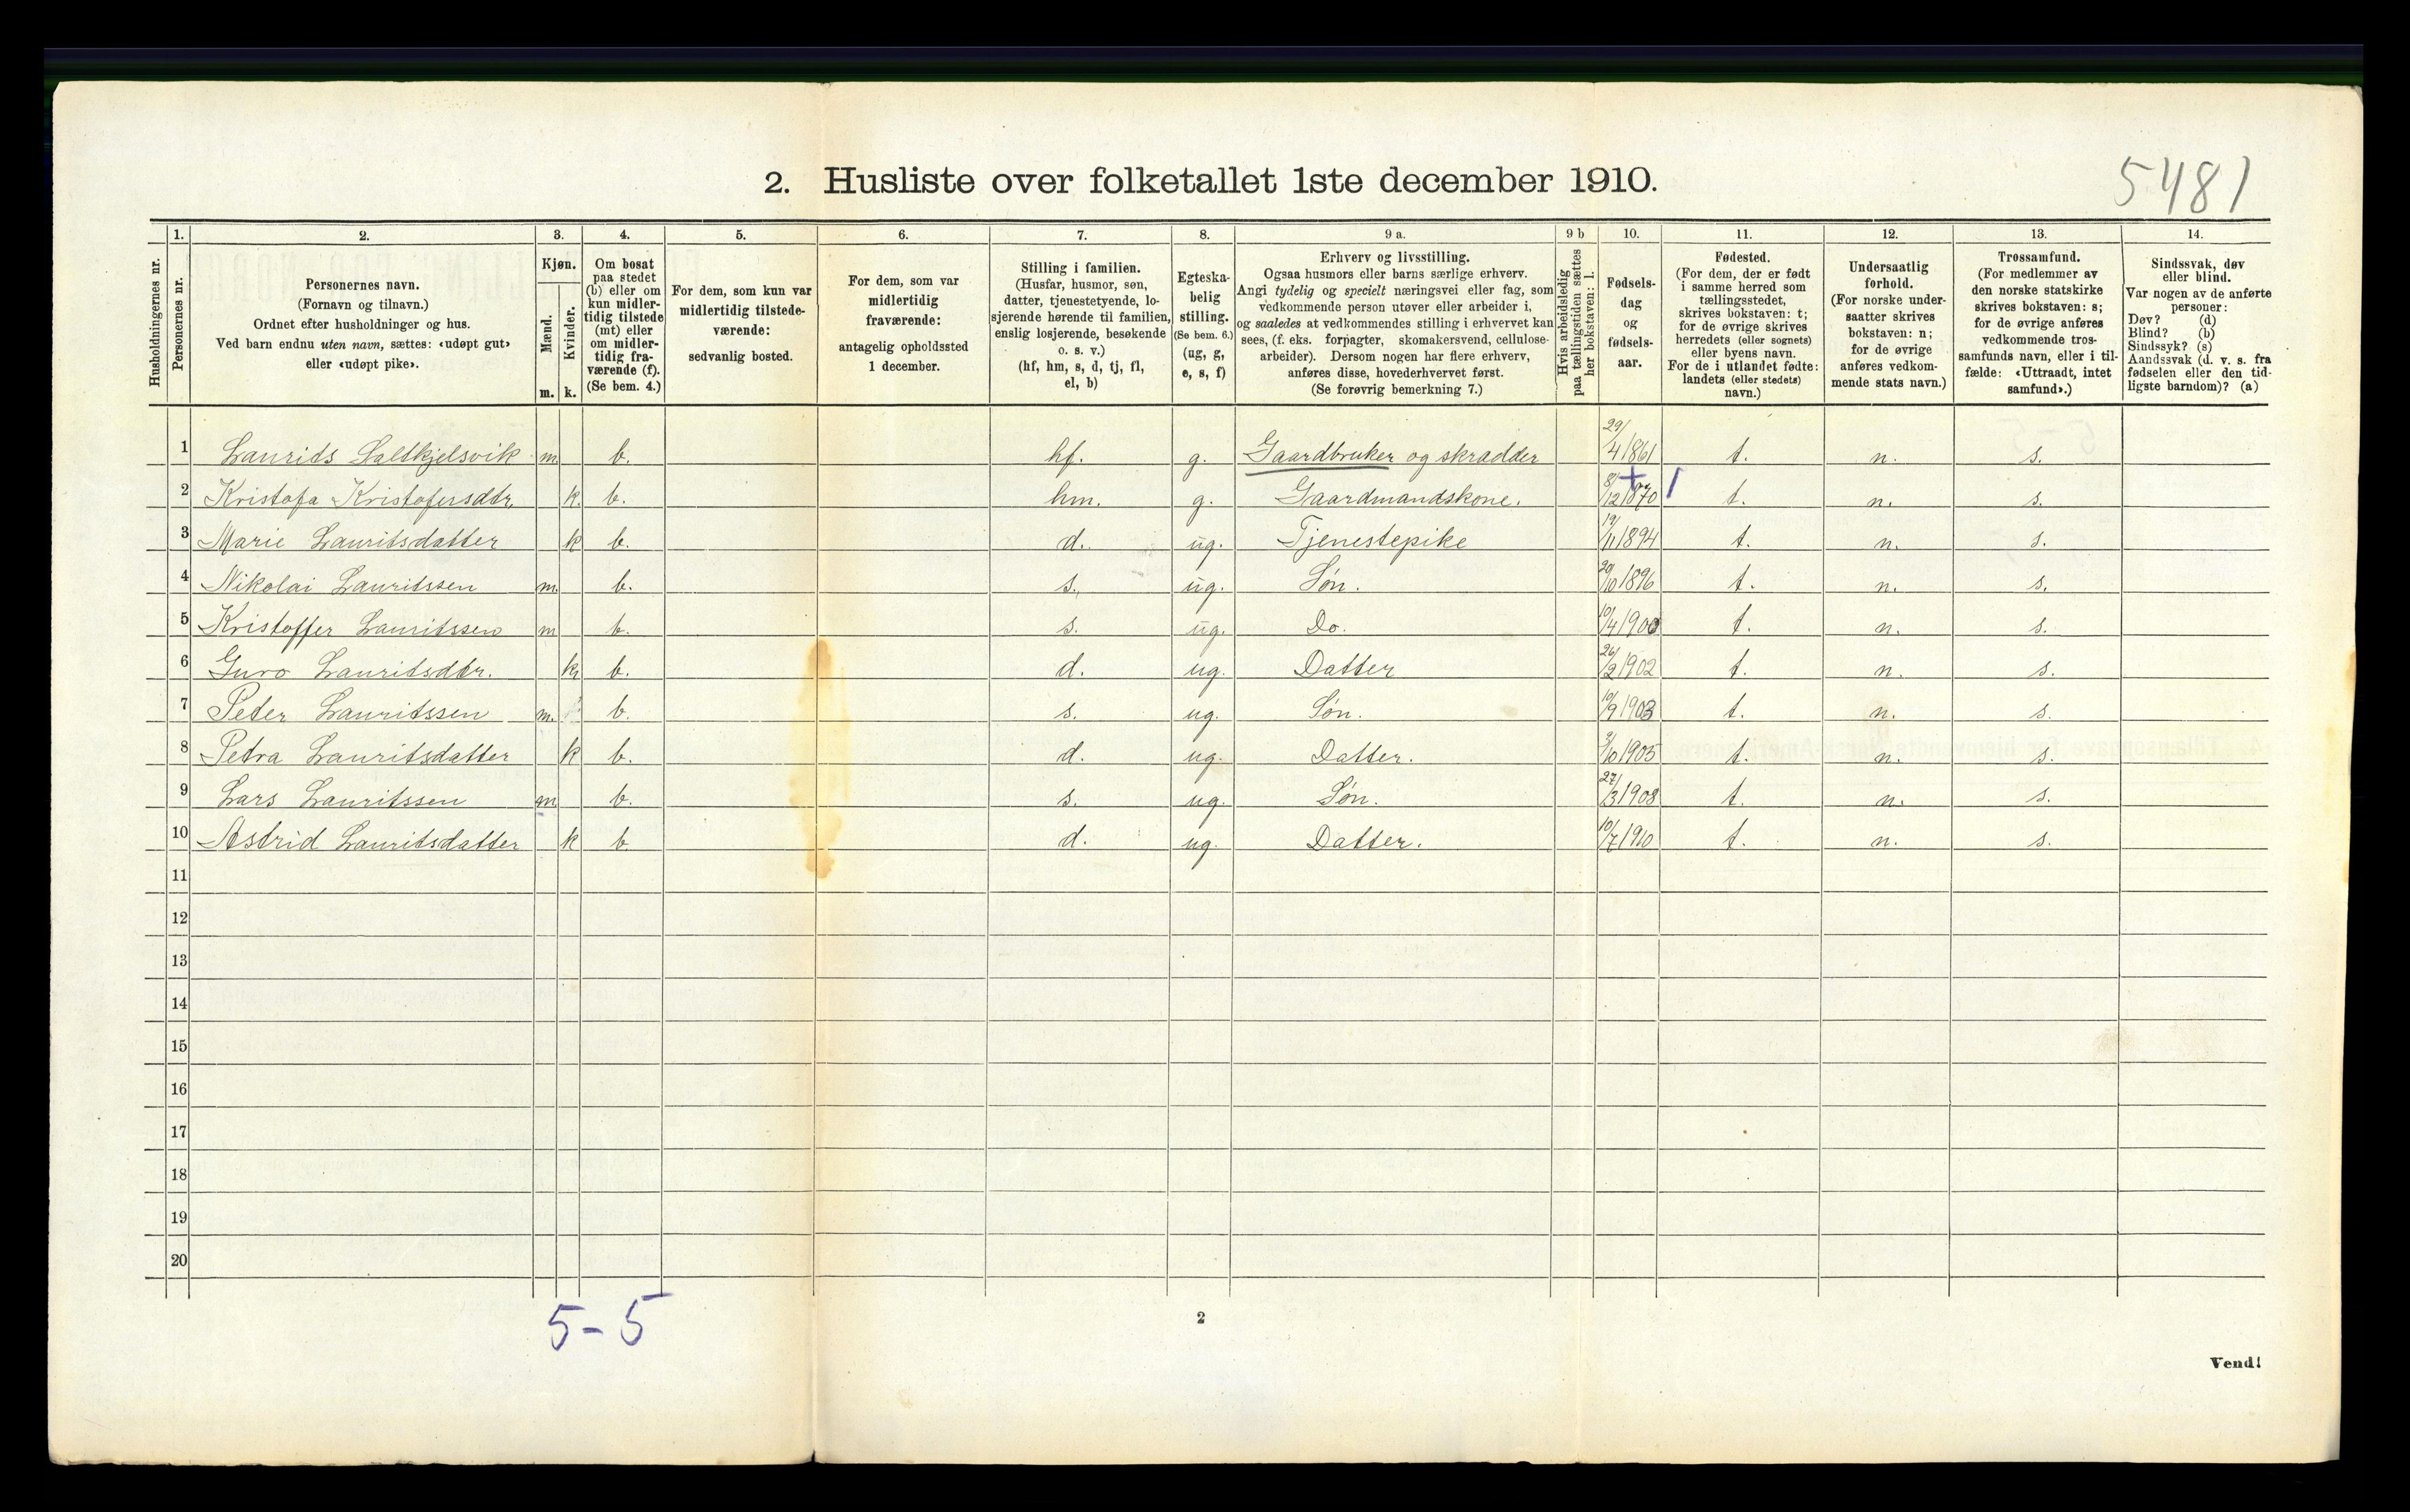 2. Husliste over folketallet 1ste december 1910.
5481
Husholdningernes nr.
1. Personernes nr.
2. Personernes navn. (Fornavn og tilnavn.) Ordnet efter husholdninger og hus. Ved barn endnu uten navn, sættes: «udøpt gut» eller «udøpt pike».
3. Kjøn. Mænd. m. Kvinder. k.
4. Om bosat paa stedet (b) eller om kun midler-tidig tilstede (mt) eller om midler-tidig fra-værende (f). (Se bem. 4.)
5. For dem, som kun var midlertidig tilstede-værende: sedvanlig bosted.
6. For dem, som var midlertidig fraværende: antagelig opholdssted 1 december.
7. Stilling i familien. (Husfar, husmor, søn, datter, tjenestetyende, lo-sjerende hørende til familien, enslig losjerende, besøkende o. s. v.) (hf, hm, s, d, tj, fl, el, b)
8. Egteska-belig stilling. (Se bem. 6.) (ug, g, e, s, f)
9 a. Erhverv og livsstilling. Ogsaa husmors eller barns særlige erhverv. Angi tydelig og specielt næringsvei eller fag, som vedkommende person utøver eller arbeider i, og saaledes at vedkommendes stilling i erhvervet kan sees, (f. eks. forpagter, skomakersvend, cellulose-arbeider). Dersom nogen har flere erhverv, anføres disse, hovederhvervet først. (Se forøvrig bemerkning 7.)
9 b Hvis arbeidsledig paa tællingstiden sættes her bokstaven: l.
10. Fødsels-dag og fødsels-aar.
11. Fødested. (For dem, der er født i samme herred som tællingsstedet, skrives bokstaven: t; for de øvrige skrives herredets (eller sognets) eller byens navn. For de i utlandet fødte: landets (eller stedets) navn.)
12. Undersaatlig forhold. (For norske under-saatter skrives bokstaven: n; for de øvrige anføres vedkom-mende stats navn.)
13. Trossamfund. (For medlemmer av den norske statskirke skrives bokstaven: s; for de øvrige anføres vedkommende tros-samfunds navn, eller i til-fælde: «Uttraadt, intet samfund».)
14. Sindssvak, døv eller blind. Var nogen av de anførte personer: Døv? (d) Blind? (b) Sindssyk? (s) Aandssvak (d. v. s. fra fødselen eller den tid-ligste barndom)? (a)
1 Laurids Saltkjelsvik m. b. hf. g. Gaardbruker og skrædder 29/4 1861 t. n. s.
2 Kristofa Kristofersdtr. k. b. hm. g. Gaardmandskone. 8/12 1870 t. n. s.
3 Marie Lauritsdatter k b. d. ug. Tjenestepike 19/11 1894 t. n. s.
4 Nikolai Lauritssen m. b. s. ug. Søn. 20/10 1896 t. n. s.
5 Kristoffer Lauritssen m b. s. ug. Do. 10/4 1900 t. n. s.
6 Guro Lauritsdtr. k b. d. ug. Datter 26/2 1902 t. n. s.
7 Peter Lauritssen m. b. s. ug. Søn. 10/9 1903 t. n. s.
8 Petra Lauritsdatter k b. d. ug. Datter. 3/10 1905 t. n. s.
9 Lars Lauritssen m b. s. ug. Søn. 27/3 1908 t. n. s.
10 Astrid Lauritsdatter k b. d. ug. Datter. 10/7 1910 t. n. s.
11
12
13
14
15
16
17
18
19
20
5-5
2
Vend!